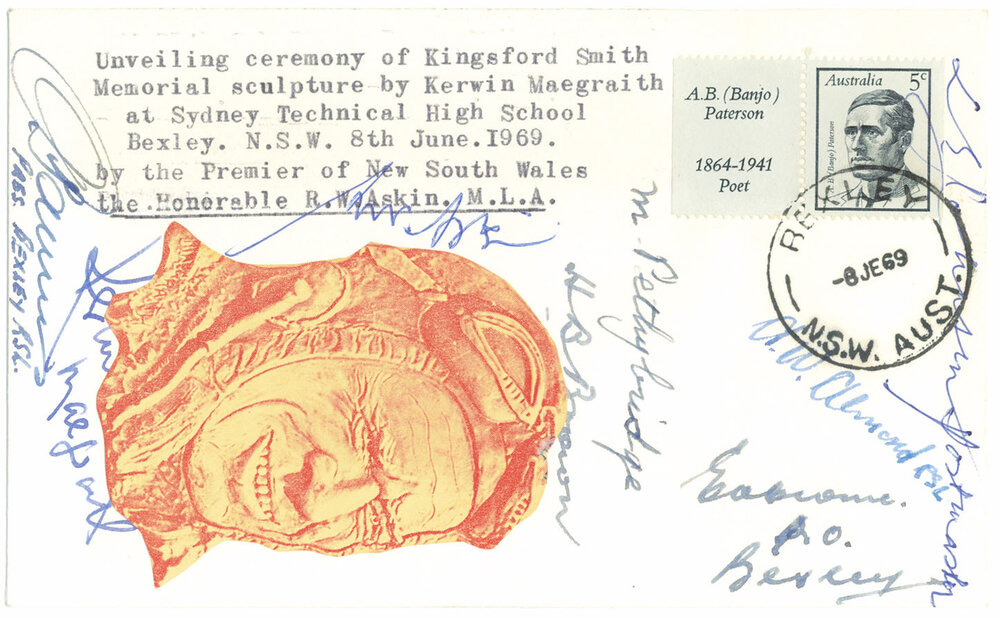 Unveiling ceremony of Kingsford Smith
Memorial sculpture by Kerwin Maegraith
at Sydney Technical High School
Bexley. N.S.W. 8th June.I969.
by the Premier of New South Wales
the Honorable R.W.Askin. M.L.A.
A.B. (Banjo)
Paterson
1864-1941
Poet
Australia
5c
A.B. (Banjo) Paterson
BEXLEY
-8JE69
N.S.W. AUST.
PRES. BEXLEY RSL.
Kerwin Maegraith
M. Pethybridge
H B Brown
A.W. Almond RSL
Postmaster
P.O.
Bexley